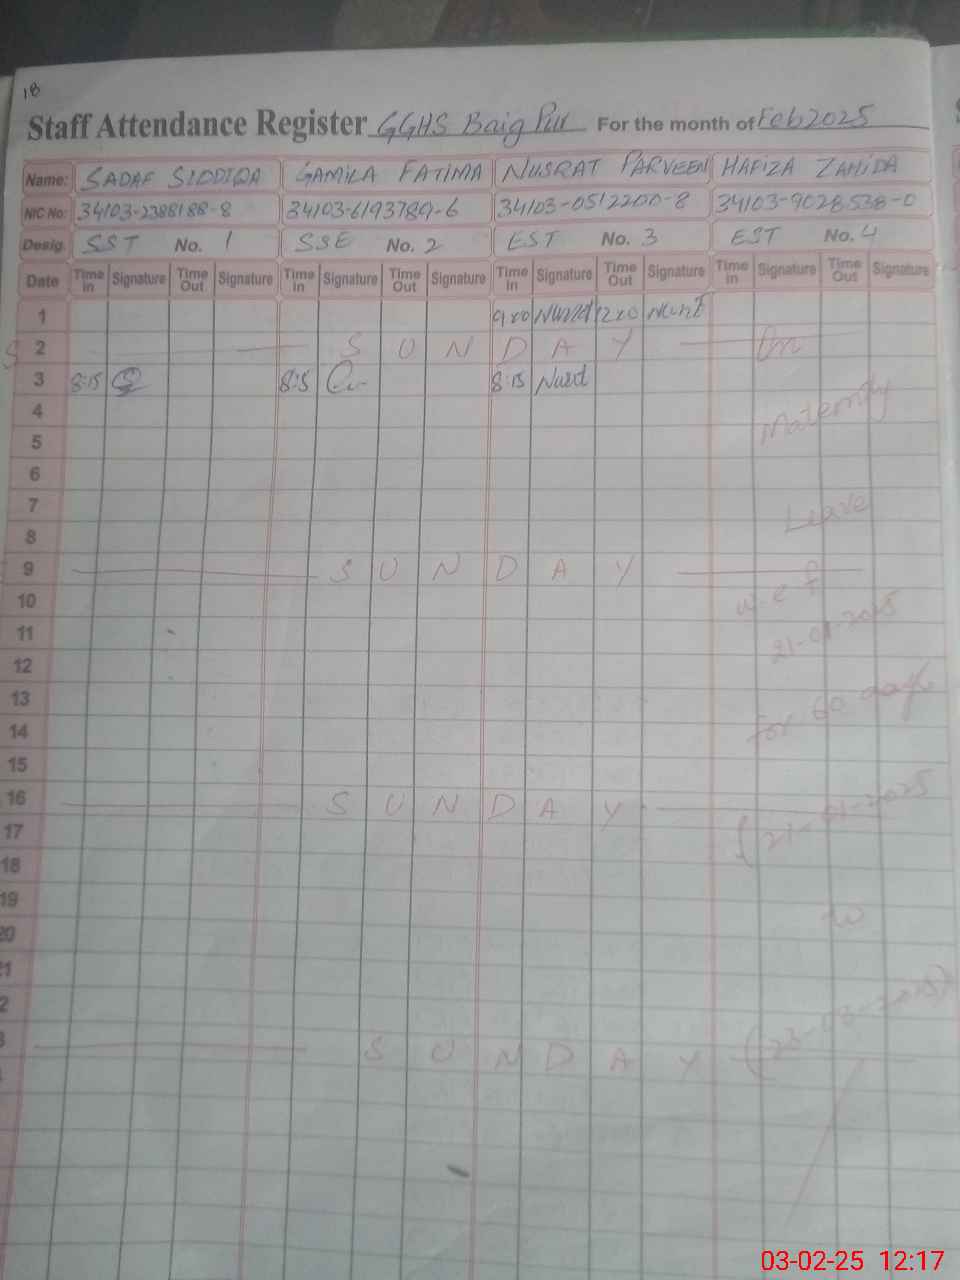 18
Staff Attendance Register GGHS Baig Pur For the month of Feb 2025
Name: SADAF SIDDIQA GAMILA FATIMA NUSRAT PARVEEN HAFIZA ZAHIDA
NIC No: 34103-2388188-8 34103-6193789-6 34103-0512200-8 34103-9028538-0
Desig. SST No. 1 SSE No. 2 EST No. 3 EST No. 4
Date Time In Signature Time Out Signature Time In Signature Time Out Signature Time In Signature Time Out Signature Time In Signature Time Out Signature
1
S 2 SUNDAY On
3 8:15 8:15 8:15
4 Maternity
5
6
7 Leave
8
9 SUNDAY
10 w.e.f
11 21-01-2025
12
13 for 60 days
14
15
16 SUNDAY (21-01-2025
17
18
19 to
20
21
2
3 SUNDAY (23-03-2025)
03-02-25 12:17